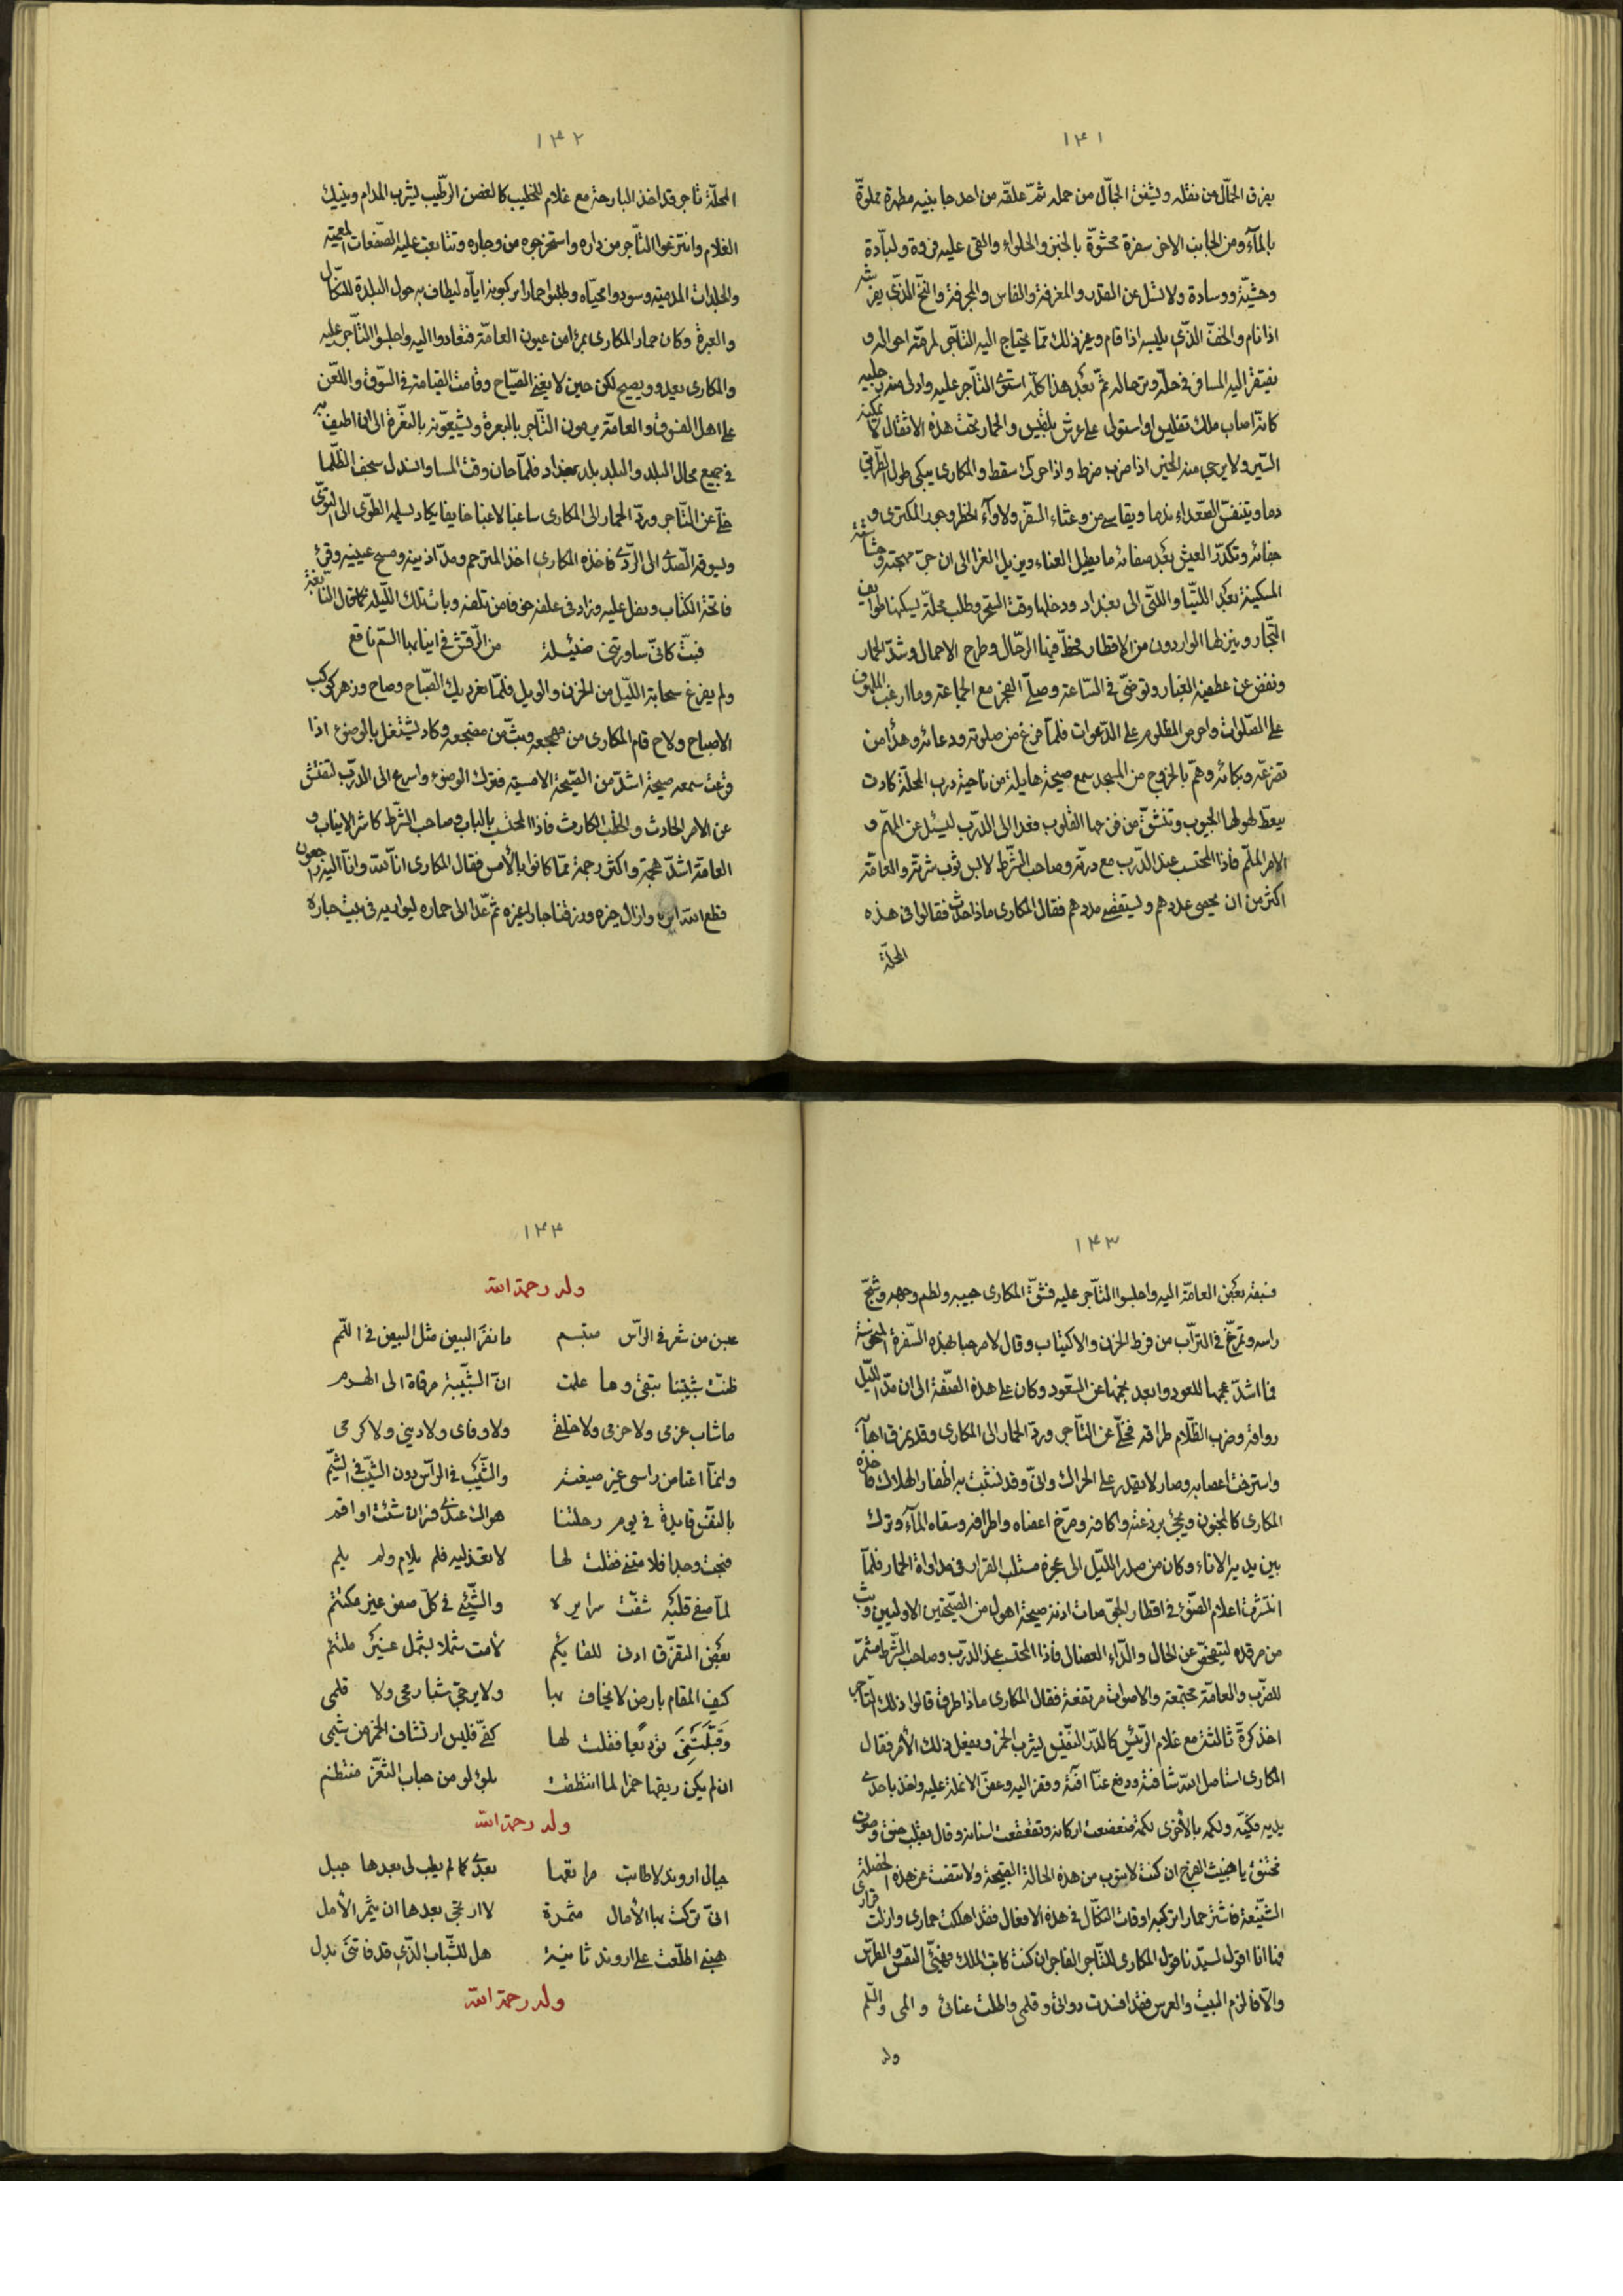 ١٤١
يفرق الحمّال من نقله ويشفق الجمّال من حمله ثمّ علقه من احد جانبيه مطهرة مملوّة
بالمآء ومن الجانب الاخر سفرة محشوّة بالخبز والحلواء والقى عليه فروة ولبّادة
وحشيّة ووسادة ولا تسئل عن القدر والمغرفة والفاس والمجرفة والنخّ الّذى يفرشه
اذا نام والخفّ الّذى يلبسه اذا قام وغير ذلك ممّا يحتاج اليه التّاجر لمرمّة احواله و
يفتقر اليه المسافر فى حلّه وترحاله ثمّ بعد هذا كلّه استوى التّاجر عليه وادلى رجليه
كانّه اصاب ملك تفليس او استولى على عرش بلقيس والحمار تحت هذه الاثقال لا يمكنه
السّير ولا يرجى منه الخير اذا ضرب ضرط واذا حرّك سقط والمكارى يبكى طول الطّريق
دما ويتنفّس الصّعداء ندما ويقاسى من وعثاء السّفر ولاوآء الخطر وجور المكترى و
جفائه وتكدّر العيش بعد صفائه ما يطيل العناء ويزيل العزا الى ان جرّ مهجته وحشاشته
المسكينة بعد اللتيّا والّتى الى بغداد ودخلها وقت السّحر وطلب محلّة يسكنها طوايف
التّجار وينزلها الواردون من الاقطار فحطّ فيها الرّحال وطرح الاحمال وشدّ الحمار
ونفض عن عطفيه الغبار وتوضّى فى السّاعة وصلّى الفجر مع الجماعة وما ارغب الملهوف
على الصّلوات واحرص المظلوم على الدّعوات فلمّا فرغ من صلوته ودعائه وهدأ من
تضرّعه وبكائه وهمّ بالخروج من المسجد سمع صيحة هايلة من ناحية درب المحلّة كادت
يعطّ لهولها الجيوب وتنشقّ من فرحها القلوب فغدا الى الدّرب ليسئل عن المهمّ و
الامر الملمّ فاذا المحتسب عند الدّرب مع درّته وصاحب الشّرط لابس ثوب شرّته والعامّة
اكثر من ان يحصى عددهم ويستقصى مددهم فقال المكارى ماذا حدث فقالوا فى هذه
المحلّة
١٤٢
المحلّة تاجر قد اخذ البارحة مع غلام للخطيب كالغصن الرّطيب يشرب المدام وينيك
الغلام وانتزعوا التّاجر من داره واستخرجوه من وجاره وتتابعت عليه الصّفعات المعمية
والجلدات المدمية وسودوا محيّاه وطلبوا حمارا يركبونه ايّاه ليطاف به حول البلدة للنّكال
والعبرة وكان حمار المكارى بمرأى من عيون العامّة فتعادوا اليه واجلسوا التّاجر عليه
والمكارى يعدو ويصيح لكن حين لا يغنى الصّياح وقامت القيامة فى السّوق واللّعن
على اهل الفسوق والعامّة يرمون التّاجر بالبعرة ويشيّعونه بالنعّرة الى ان اطيف به
فى جميع محال البلد والبلد بلد بغداد فلمّا حان وقت المسا وانسدل سجف الظّلما
خلّى عن التّاجر وردّ الحمار الى المكارى ساغبا لاغبا خايفا يكاد يسلمه الطّوى الى التوى
ويسوقه الصّدى الى الرّدى فاخذه المكارى اخذ المترحم ومدّ اذنيه ومسح عينيه وقرئ
فاتحة الكتاب وتفل عليه وزاد فى علفه خوفا من تلفه وبات تلك اللّيلة كما قال النّابغة
فبتّ كانّى ساورتنى ضئيلة من الرّقش فى انيابها السّم ناقع
ولم يفرغ سحابة اللّيل من الحزن والويل فلمّا تغرد ديك الصّباح وصاح وزهر كوكب
الاصباح ولاح قام المكارى من مهجعه ووثب من مضجعه وكاد يشتغل بالوضوء اذا
قرعت سمعه صيحة اشدّ من الصّيحة الامسيّة فترك الوضوء واسرع الى الدّرب لتفتّش
عن الامر الحادث والخطب الكارث فاذا المحتسب بالباب وصاحب الشّرط كاشر الانياب و
العامّة اشدّ هجمة واكثر زحمة ممّا كانوا بالأمس فقال المكارى انّا للّه وانّا اليه راجعون
قطع اللّه ايره وازال خيره ورزقنا جارا غيره ثمّ غدا الى حماره ليواريه فى بيت جاره
١٤٣
فسبقه بعض العامّة اليه واجلسوا التّاجر عليه فشقّ المكارى جيبه ولطم وجهه وشجّ
راسه وتمرّغ فى التراب من فرط الحزن والاكتياب وقال لا مرحبا بهذه السّفرة المنحوسة
فما اشدّ عجمها للعود وابعد نجمها عن السّعود وكان على هذه الصّفة الى ان مدّ اللّيل
رواقه وضرب الظّلام طراقه فخلّى عن التّاجر وردّ الحمار الى المكارى وقد تمزق اهابه
واسترخت اعصابه وصار لا يقدر على الحراك وانّى وقد نشبت به اظفار الهلاك فاخذه
المكارى كالمجنون ونحّى برذعته واكافه ومرّخ اعضاه واطرافه وسقاه المآء وترك
بين يديه الاناء وكان من صدر اللّيل الى عجزه مستلب القرار فى مداواة الحمار فلمّا
انتشرت اعلام الضّوء فى اقطار الجوّ صاحت اذنه صيحة اهول من الصّيحتين الاوليين وثب
من مرقده ليتفحّص عن الحال والدّاء العضال فاذا المحتسب عند الدّرب وصاحب الشّرط مشمّر
للضّرب والعامّة مجتمعة والاصوات مرتفعة فقال المكارى ماذا طرق قالوا ذلك التّاجر
اخذ كرّة ثالثة مع غلام الرّئيس كالدّر النّفيس يشرب الخمر ويفعل ذلك الأمر فقال
المكارى استاصل اللّه شافته ودفع عنّا آفته وقفز اليه وعضّ الانملة عليه واخذ باحدى
يديه فكيّه ولكمه بالأخرى لكمة ضعضعت اركانه وتقعقعت اسنانه وقال بقلب حنق وصوت
مختنق يا خبيث الفرج ان كنت لا تتوب من هذه الحالة القبيحة ولا تتفت عن هذه الخصلة
الشّنيعة فاشتر حمارا تركبه اوقات النّكال فى هذه الافعال فقد اهلكت حمارى وازلت قرارى
فها انا اقول لسيّدنا قول المكارى للتّاجر الفاجر ان كنت كاتب الملك فهيّئ النقس والطّرس
والّا فالزم البيت والعرس فقد افسدت دواتى وقلمى واطلت عنائى والمى والسّلم
وله
١٤٤
وله رحمة اللّه
عجبن من شعر فى الرّأس مبتسم ما نفّر البيض مثل البيض فى اللّمم
ظنّت شبيبتنا تبقى وما علمت انّ الشّبيبة مرقاة الى الهرم
ما شاب عزمى ولا حزمى ولا خلقى ولا وفاى ولا دينى ولا كرمى
وانّما اعتاض راسى غير صبغته والشّيب فى الرّأس دون الشّيب فى الشّيم
بالنّفس قايلة فى يوم رحلتنا هواك عندى فسر ان شئت او اقم
فبحت وجدا فلامتنى فقلت لها لا تعذليه فلم يلام ولم يلم
لمّا صفى قلبه شفّت سرايره والشّيئ فى كلّ صفو غير مكتتم
بعض التفرّق ادنى للقائكم لأمت شملا بشمل غير ملتئم
كيف المقام بارض لا يخاف بها ولا يرجّى شبا رمحى ولا قلمى
وَقَبَّلَتْنِى توديعًا فقلت لها كفّى فليس ارتشاف الخمر من شيمى
ان لم يكن ريقها خمرا لما انتظقت بلؤلؤ من حباب الثّغر منتظم
وله رحمة اللّه
جبال اروند لا طابت مراتعها بعدى كما لم يطب لى بعدها جبل
انّى تركت بها الآمال مثمرة لا ارتجى بعدها ان يثمر الأمل
هبنى اطلّعت على اروند ثانية هل للشّباب الّذى قد فاتنى بدل
وله رحمة اللّه